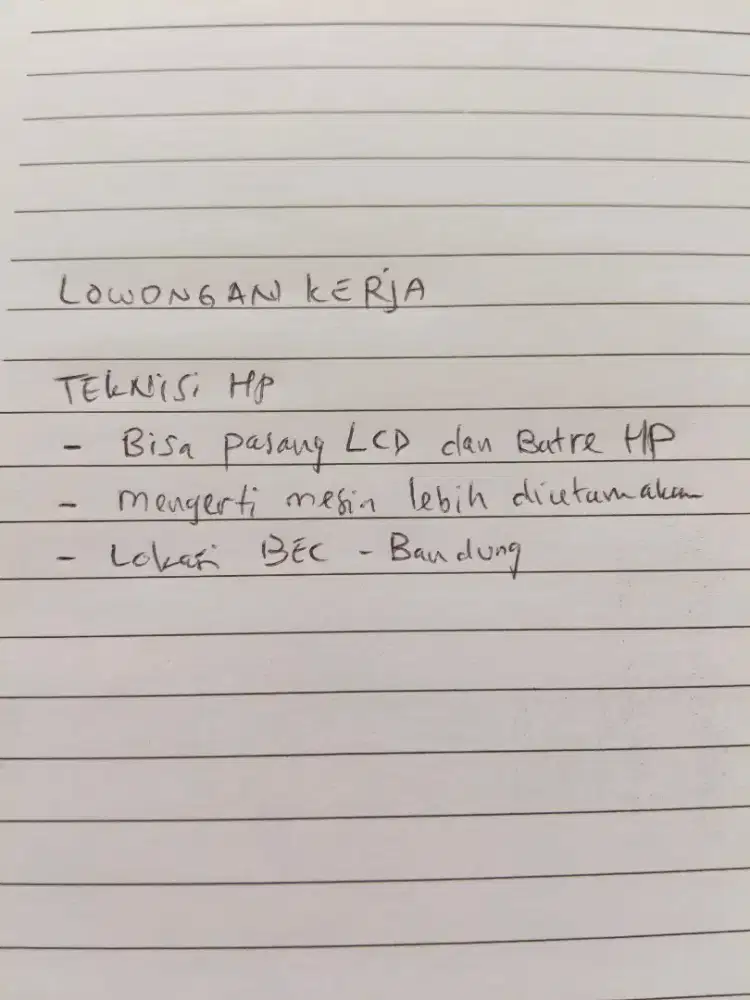 LOWONGAN KERJA
TEKNISI HP
- Bisa pasang LCD dan Batre HP
- mengerti mesin lebih diutamakan
- Lokasi BEC - Bandung